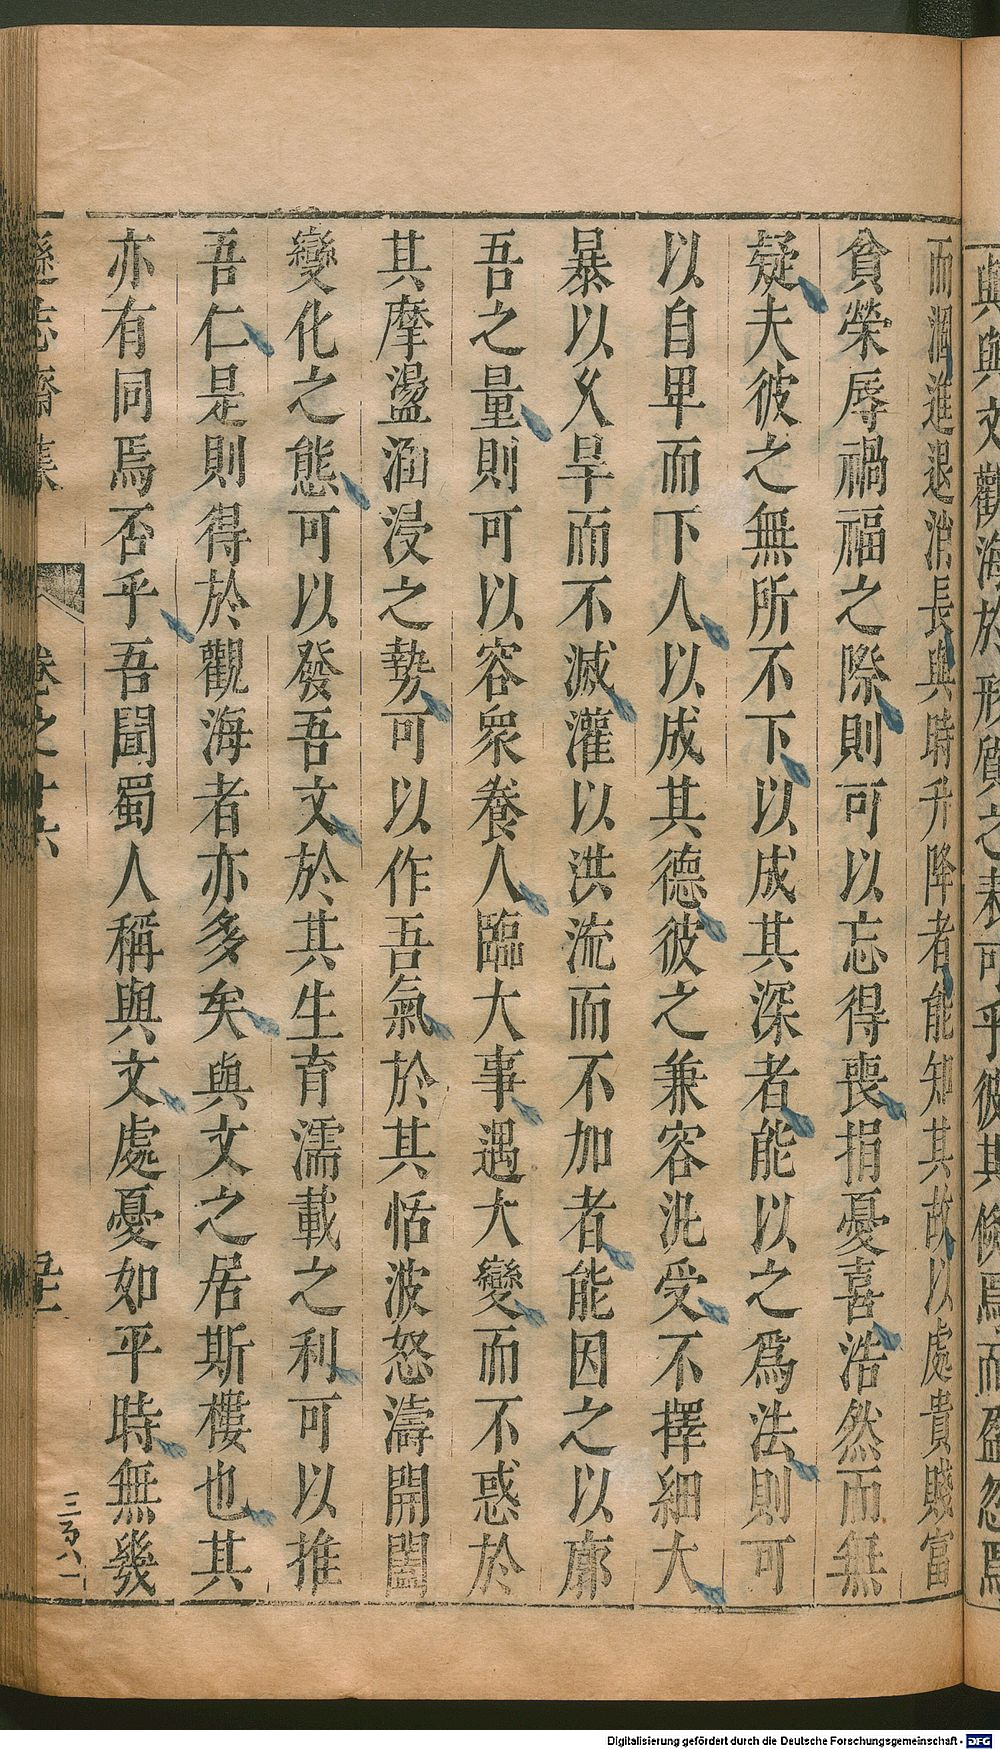 與與文觀海於形質之表可乎彼其倏焉而盈忽焉
而涸進退消長與時升降者能知其故以處貴賤富
貧榮辱禍福之際則可以忘得喪捐憂喜浩然而無
疑夫彼之無所不下以成其深者能以之爲法則可
以自卑而下人以成其德彼之兼容汎受不擇細大
暴以久旱而不減灌以洪流而不加者能因之以廓
吾之量則可以容衆養人臨大事遇大變而不惑於
其摩盪涵浸之勢可以作吾氣於其恬波怒濤開闔
變化之態可以發吾文於其生育濡載之利可以推
吾仁是則得於觀海者亦多矣與文之居斯樓也其
亦有同焉否乎吾聞蜀人稱與文處憂如平時無幾
遜志齋集 卷之十六
三百八一
Digitalisierung gefördert durch die Deutsche Forschungsgemeinschaft - DFG